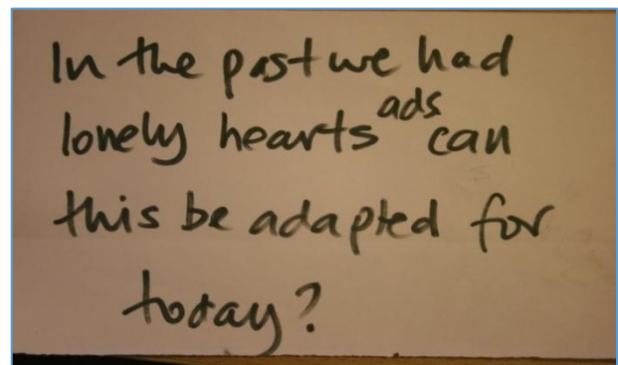 In the past we had
lonely hearts ads can
this be adapted for
today?